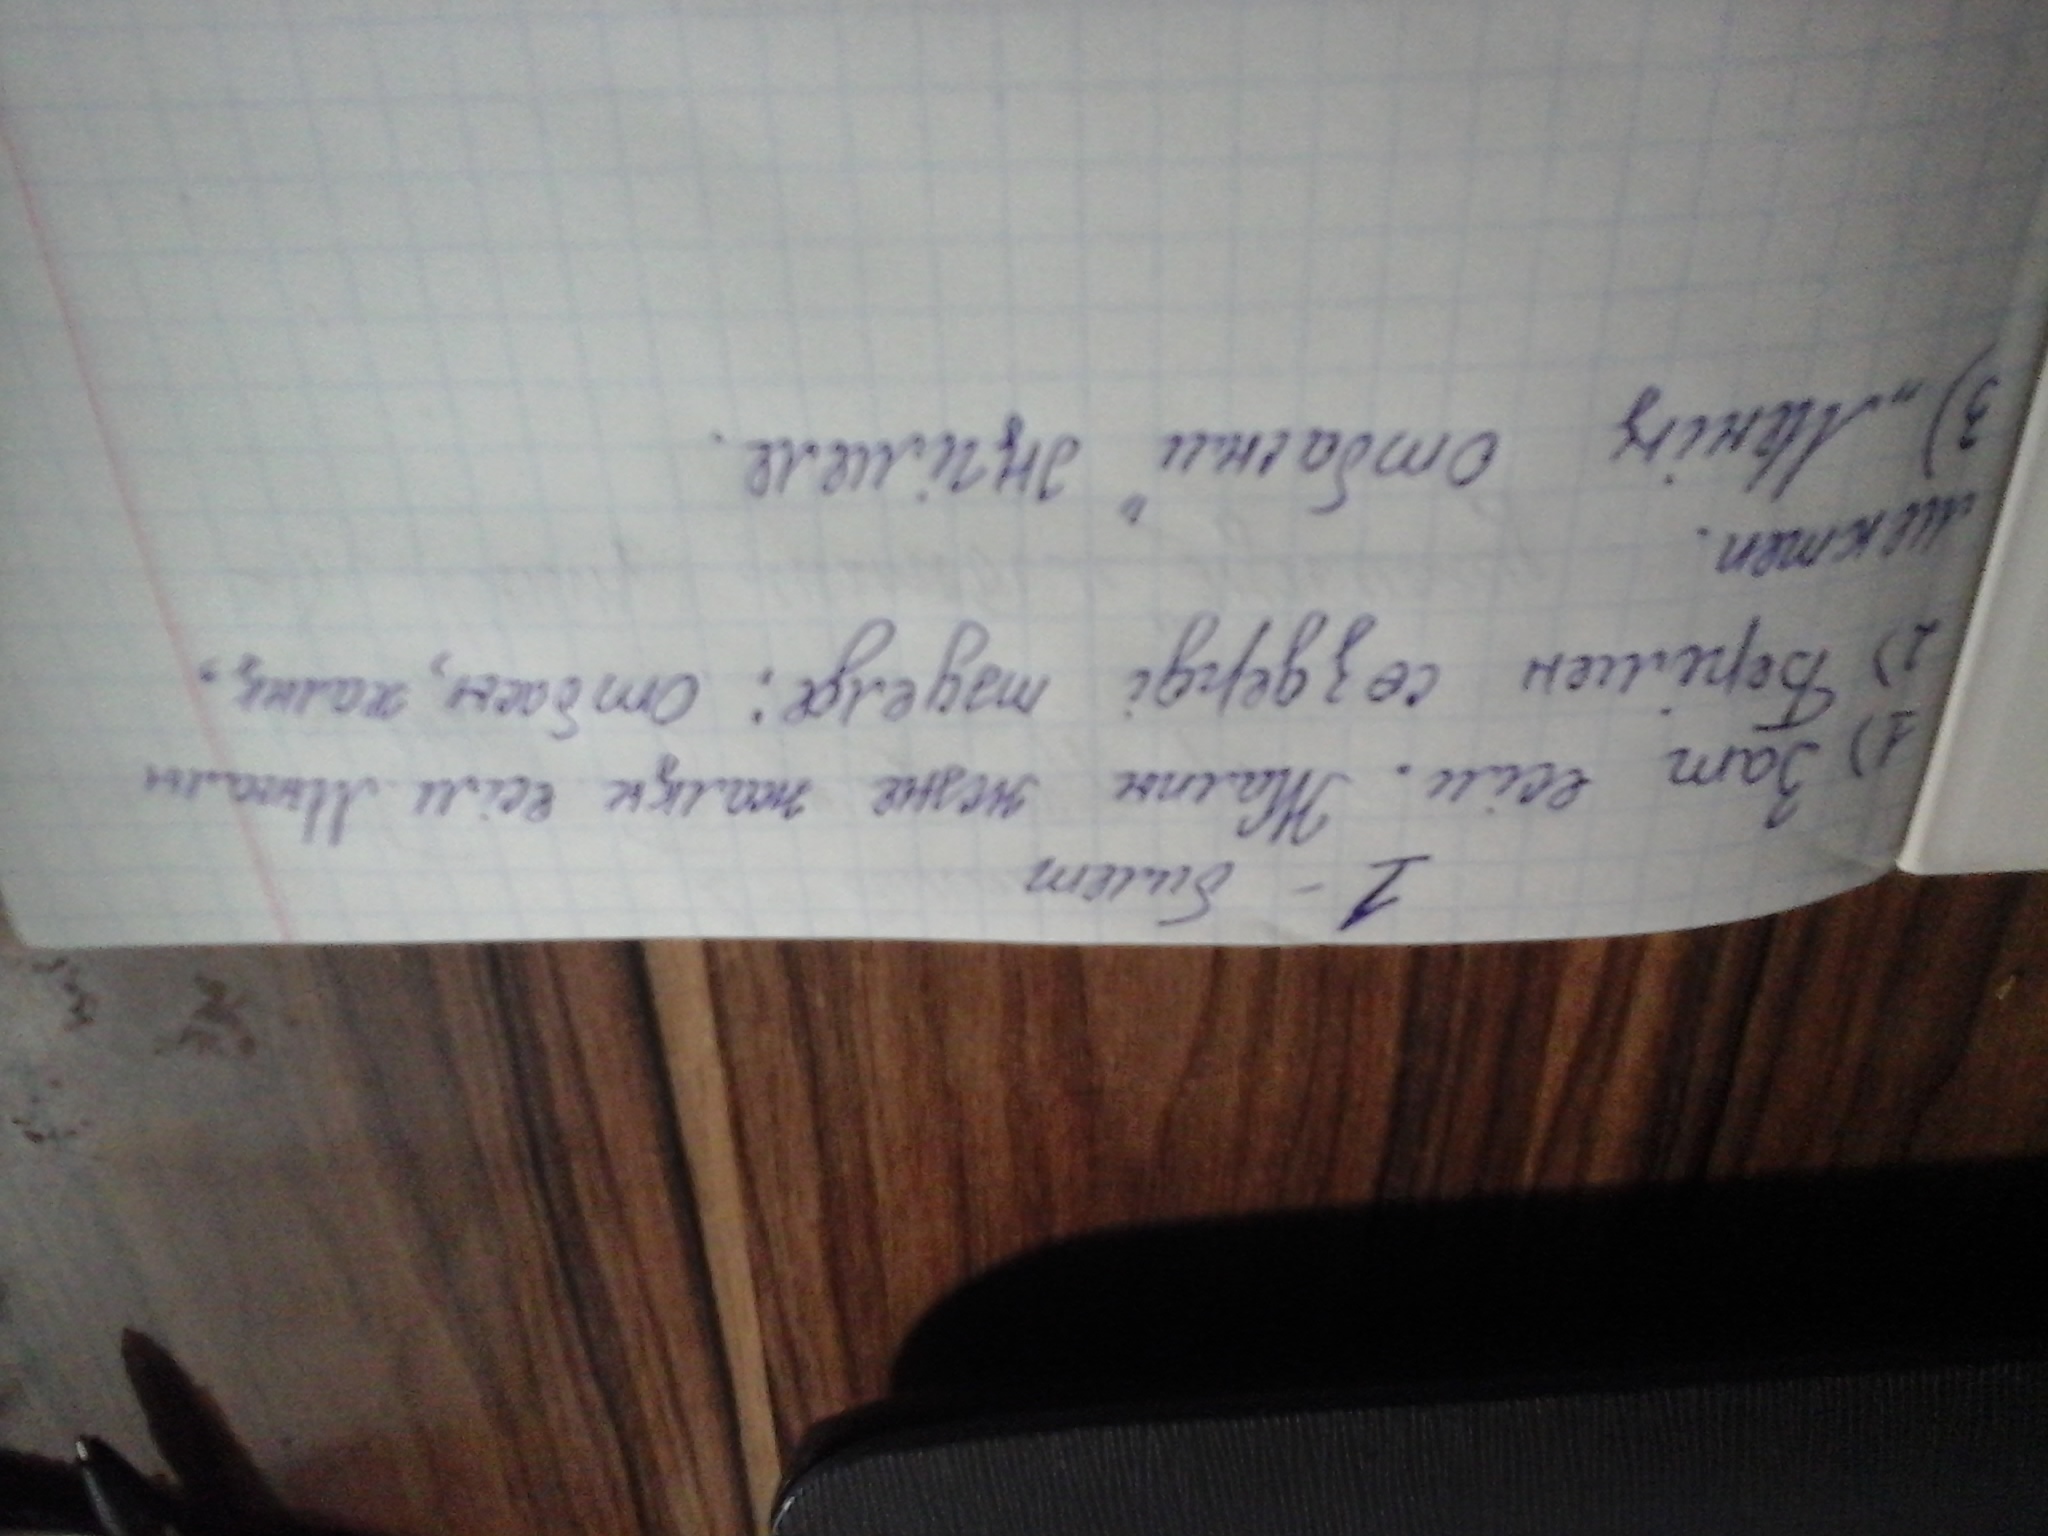 1 - билет
1) Зат есім. Жалпы және жалқы есім. Мысалы
2) Берілген сөздерді түрде: отбасы, халық,
мектеп.
3) "Менің отбасым" әңгімеле.